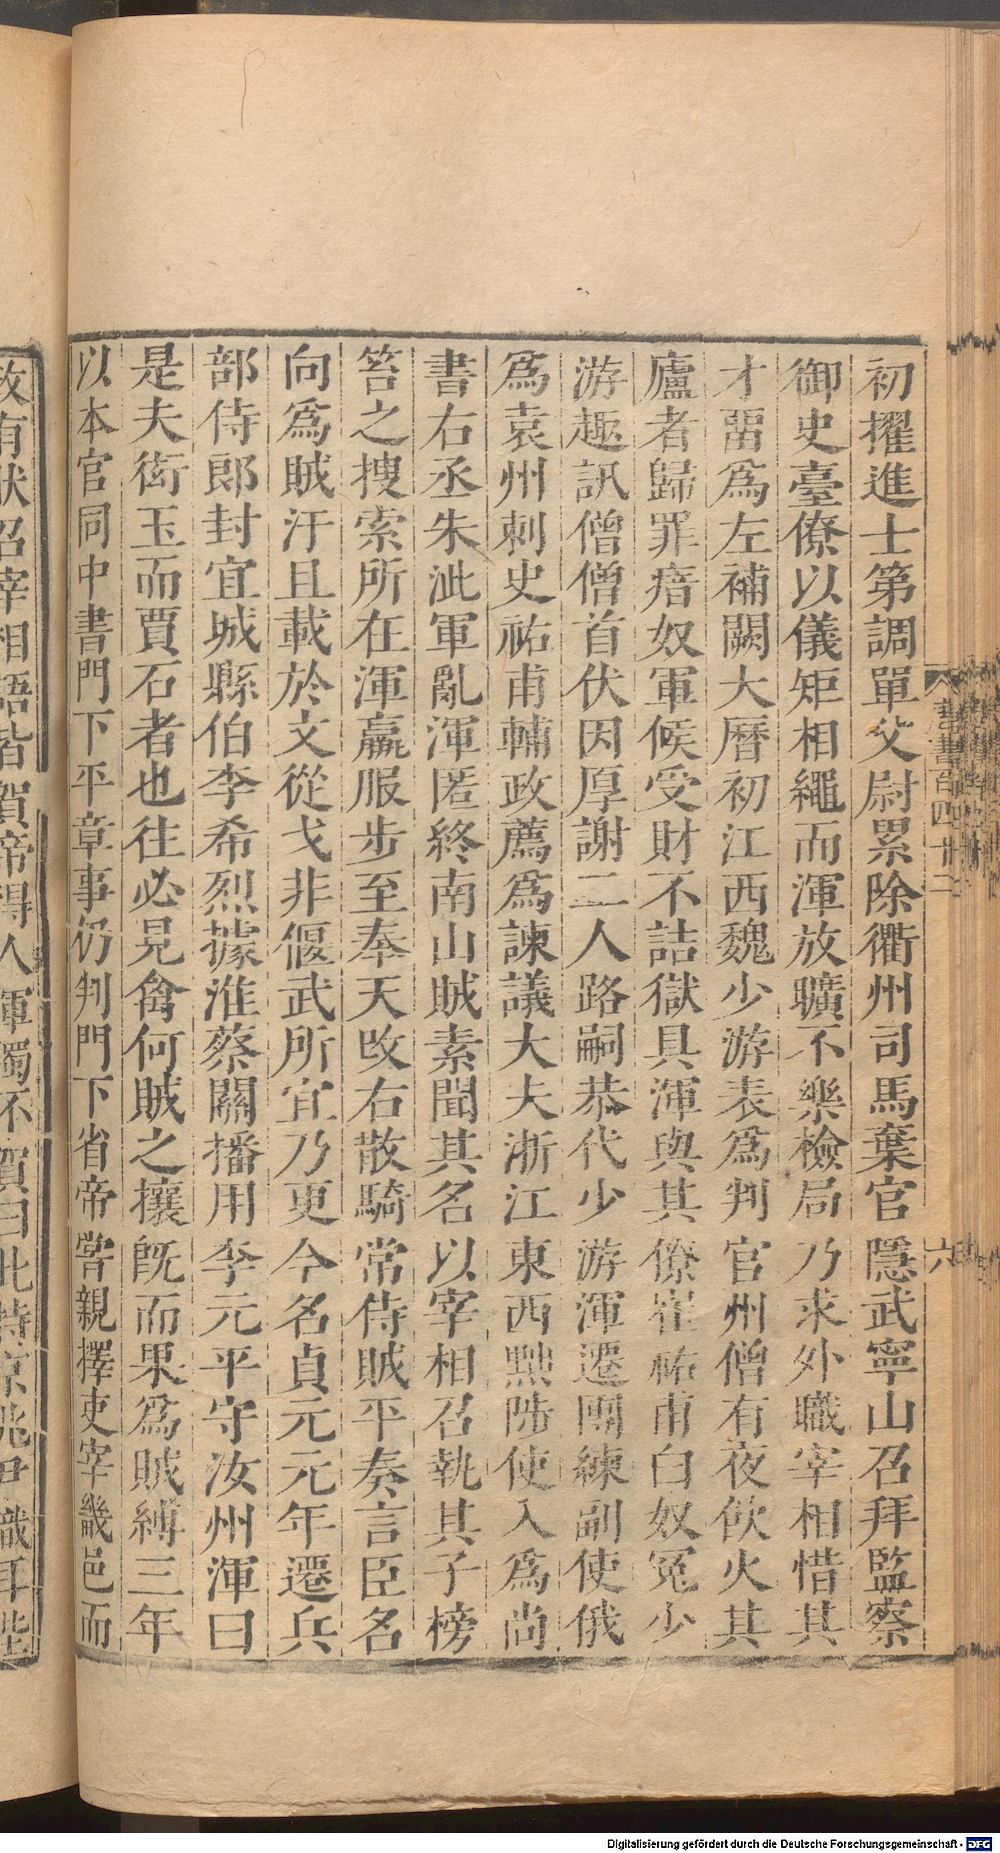 初擢進士第調單父尉累除衢州司馬棄官隱武寧山召拜監察
御史臺僚以儀矩相繩而渾放曠不樂檢局乃求外職宰相惜其
才畱爲左補闕大曆初江西魏少游表爲判官州僧有夜飲火其
廬者歸罪瘖奴軍候受財不詰獄具渾與其僚崔祐甫白奴冤少
游趣訊僧僧首伏因厚謝二人路嗣恭代少游渾遷團練副使俄
爲袁州刺史祐甫輔政薦爲諫議大夫浙江東西黜陟使入爲尚
書右丞朱泚軍亂渾匿終南山賊素聞其名以宰相召執其子榜
笞之搜索所在渾羸服步至奉天改右散騎常侍賊平奏言臣名
向爲賊汙且載於文從戈非偃武所宜乃更今名貞元元年遷兵
部侍郎封宜城縣伯李希烈據淮蔡關播用李元平守汝州渾曰
是夫衒玉而賈石者也往必見禽何賊之攘旣而果爲賊縛三年
以本官同中書門下平章事仍判門下省帝嘗親擇吏宰畿邑而
政有狀召宰相語皆賀帝得人渾獨不賀曰此特京兆尹職耳陛
唐書百四十二
六
Digitalisierung gefördert durch die Deutsche Forschungsgemeinschaft - DFG